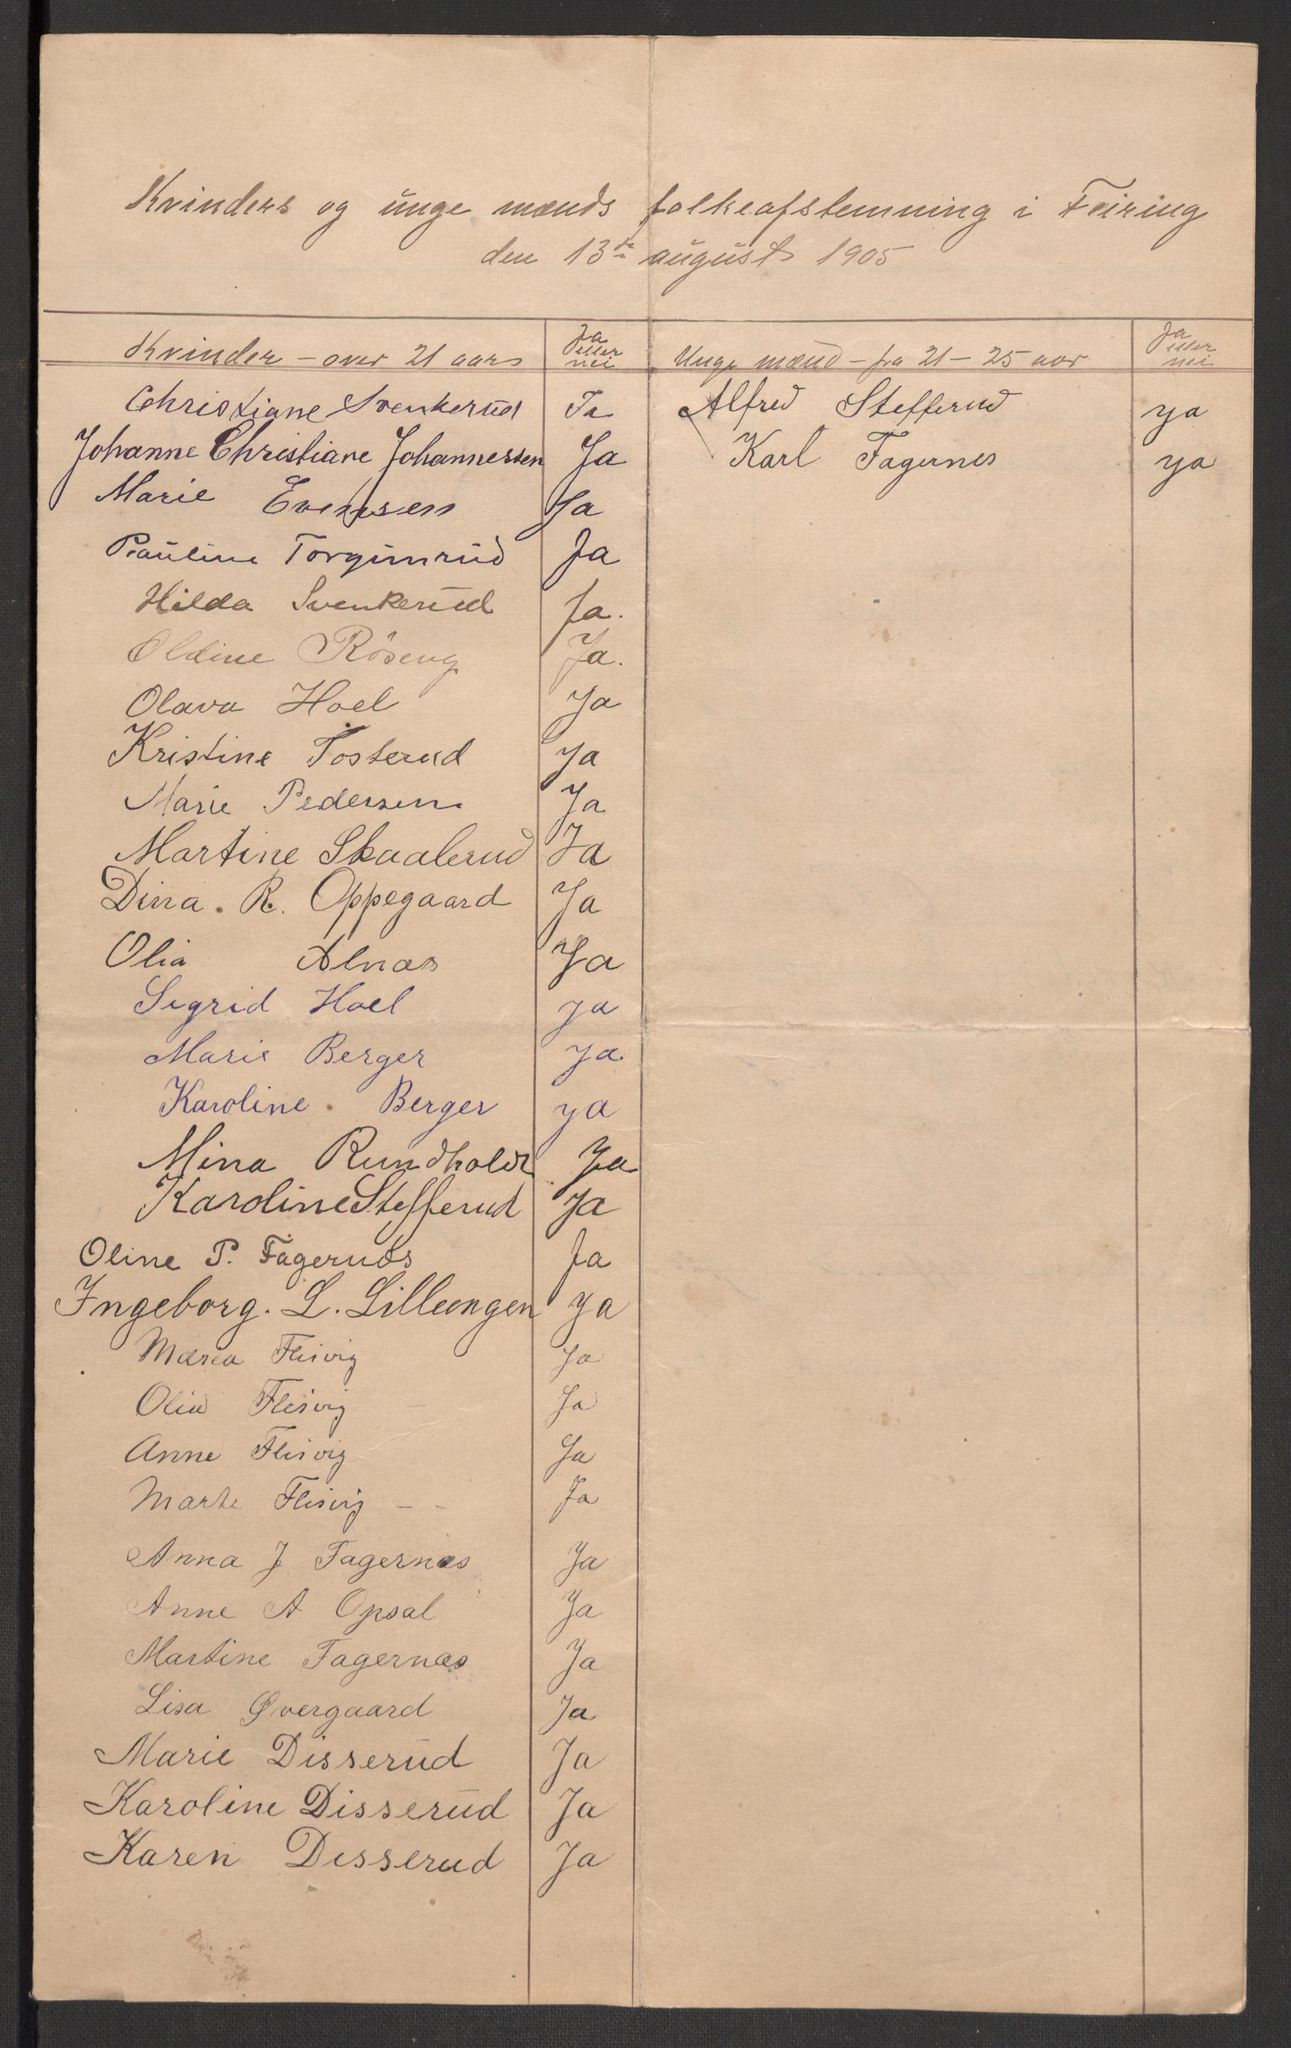 Kvinders og unge mænds folkeafstemning i Feiring
den 13de august 1905
Kvinder – over 21 aar Ja eller nei Unge mænd – fra 21 – 25 aar Ja eller nei
Christiane Svenkerud Ja Alfred Stefferud ja
Johanne Christiane Johannessen Ja Karl Fagernes ja
Marie Evensen Ja
Pauline Torgunrud Ja
Hilda Svenkerud Ja.
Oldine Röseng Ja.
Olava Hoel Ja
Kristine Tosterud Ja
Marie Pedersen Ja
Martine Skaalerud Ja
Dina. R. Oppegaard Ja
Olia Alnæs Ja
Sigrid Hoel ja
Marie Berger Ja.
Karoline. Berger ja
Mina Rundholdt Ja
Karoline Stefferud Ja
Oline P. Fagernæs Ja
Ingeborg. L. Lilleengen Ja
Maria Flesvig Ja
Olia Flesvig Ja
Anne Flesvig Ja
Marte Flesvig – – Ja
Anna J Fagernæs Ja
Anne A Opsal Ja
Martine Fagernæs Ja
Lisa Øvergaard Ja
Marie Disserud Ja
Karoline Disserud Ja
Karen Disserud Ja